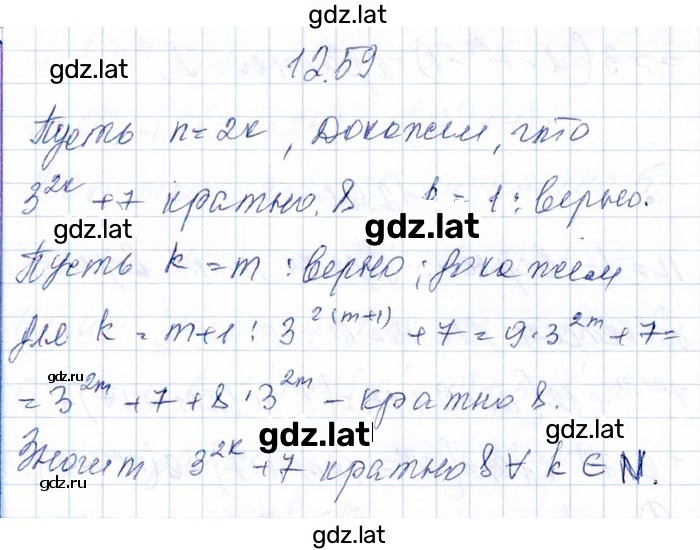 gdz.lat
gdz.lat
12.59
Пусть n=2k, Докажем, что
gdz.lat
3^{2k} +7 кратно 8 k = 1: верно.
gdz.lat
gdz.lat
Пусть k = m : верно ; докажем
для k = m+1 : 3^{2(m+1)} + 7 = 9·3^{2m} + 7 =
gdz.ru
gdz.lat
= 3^{2m} + 7 + 8·3^{2m} – кратно 8.
gdz.lat
gdz.lat
Значит 3^{2k} +7 кратно 8 ∀ k ∈ N.
gdz.lat
gdz.lat